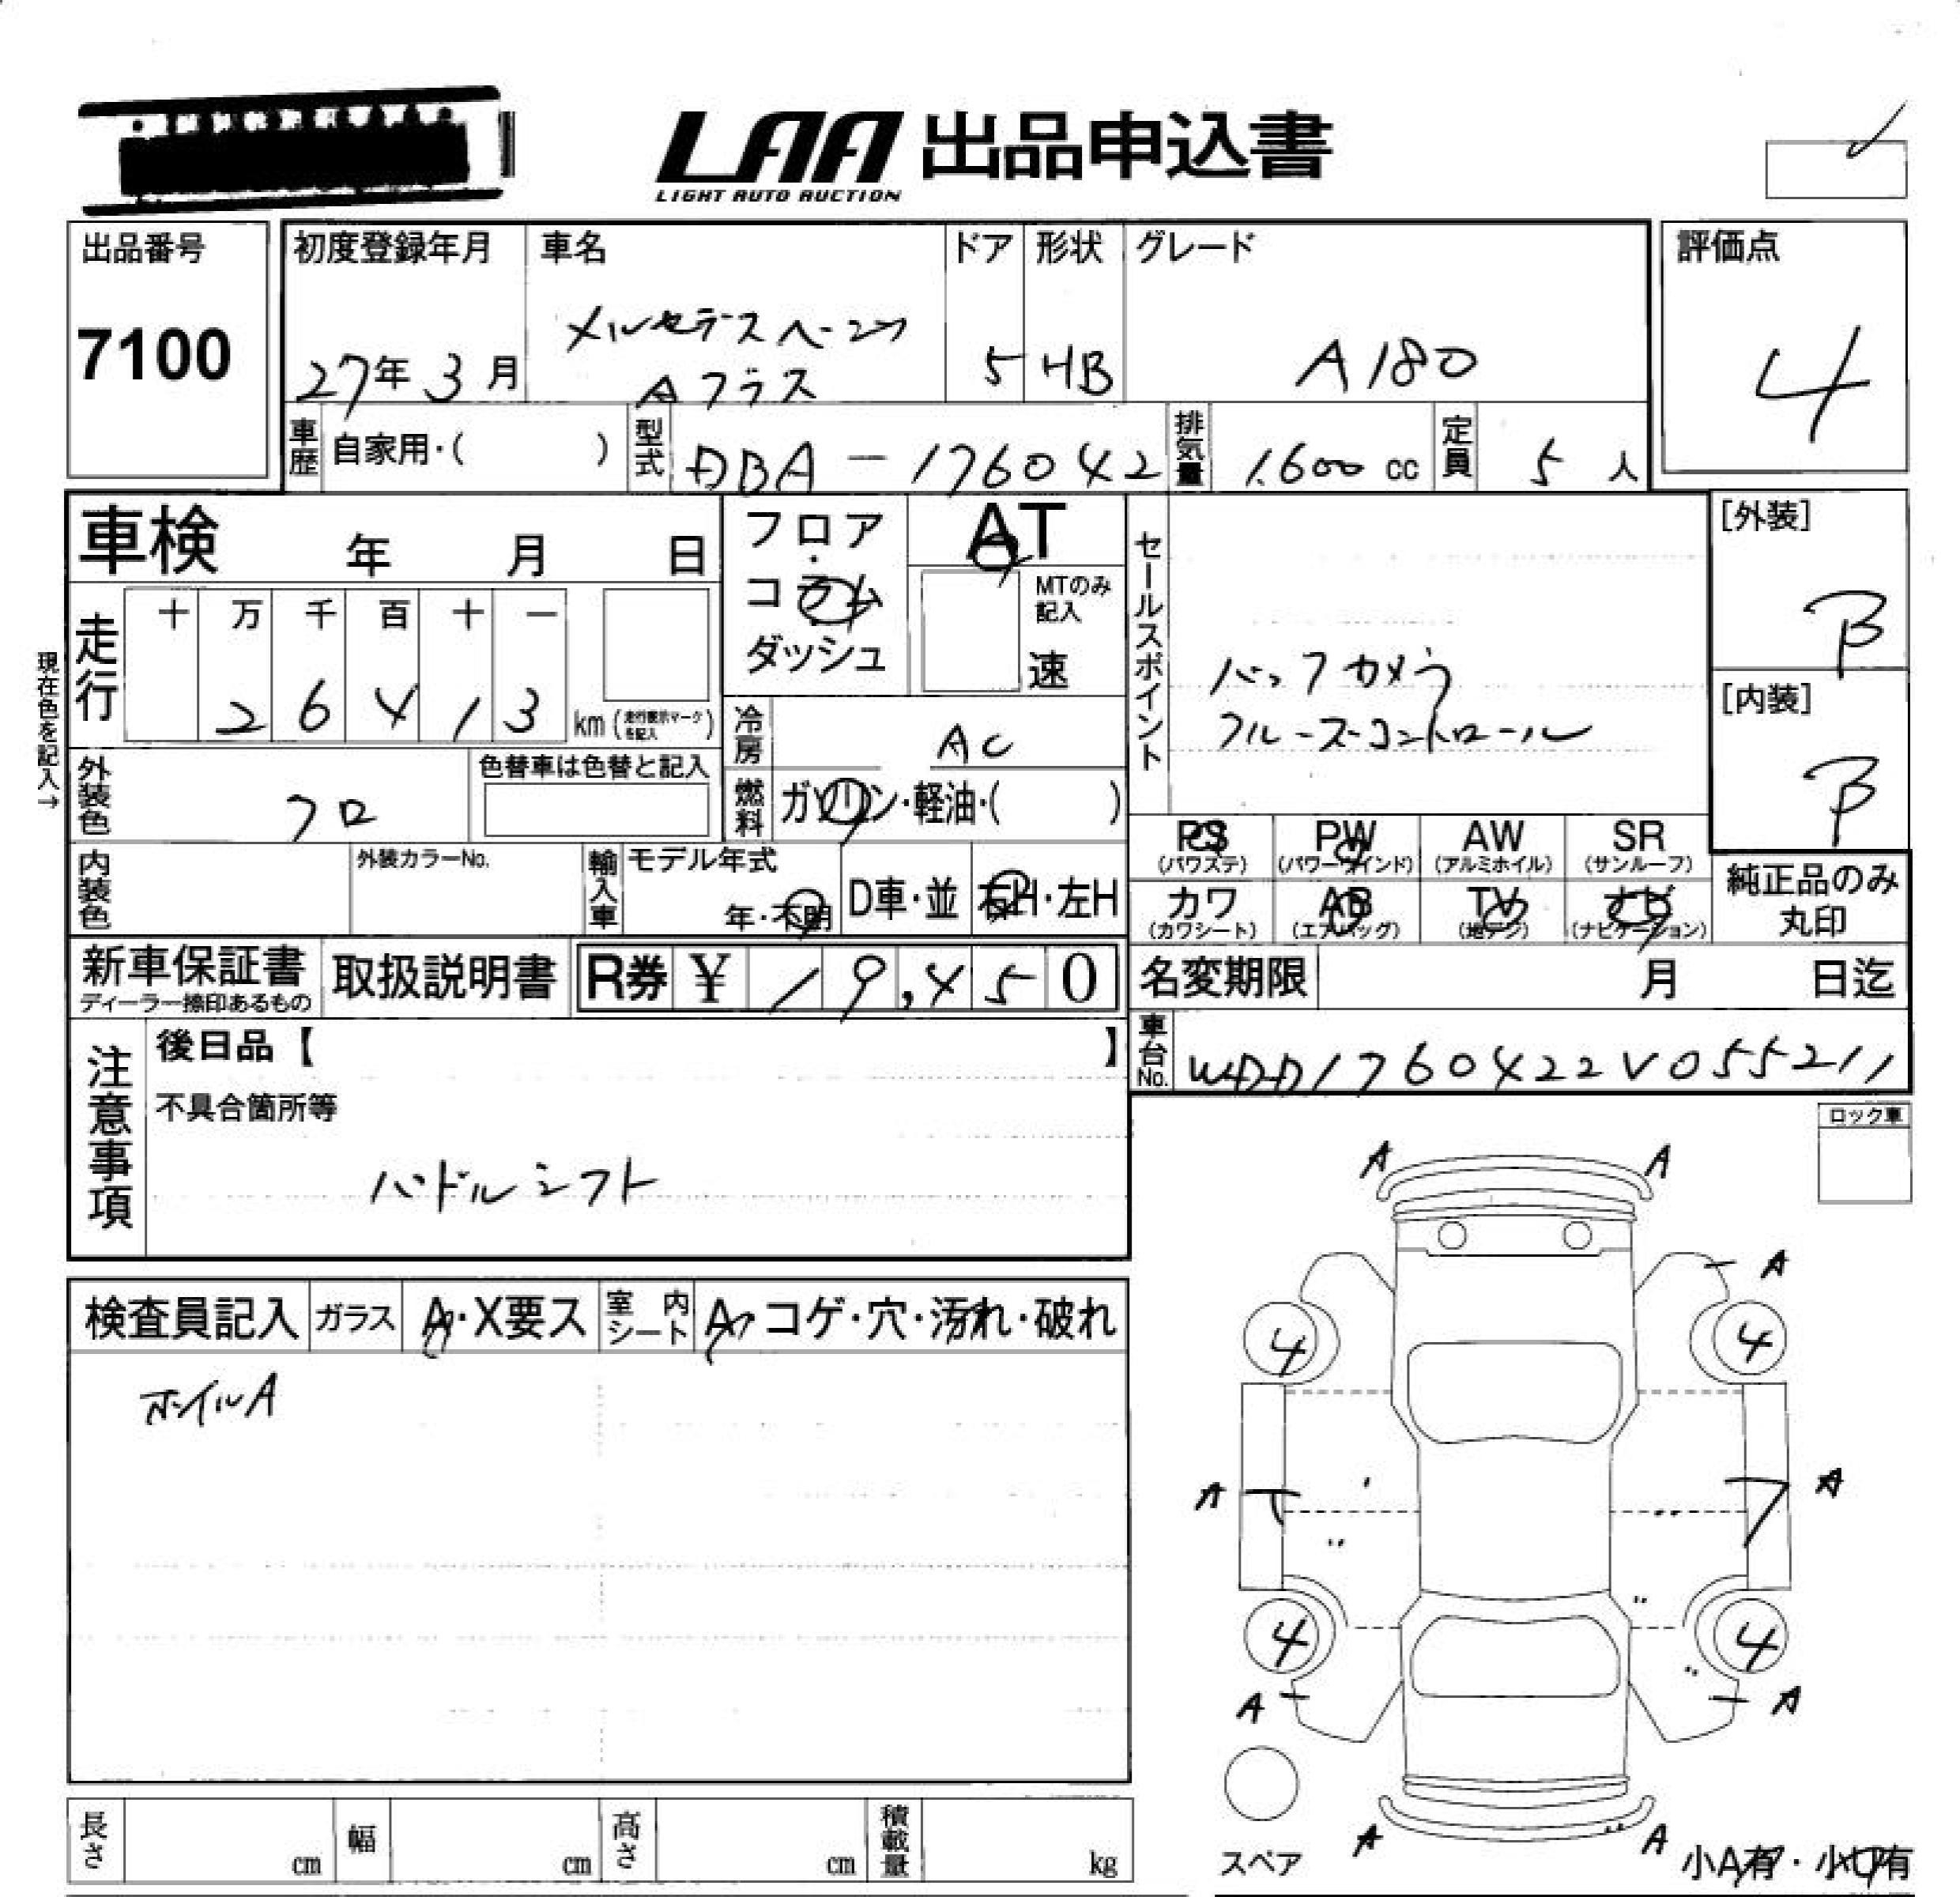 LAA 出品申込書
LIGHT AUTO AUCTION
出品番号
7100
初度登録年月
27年 3月
車名
メルセデスベンツ
Aクラス
ドア
5
形状
HB
グレード
A180
評価点
4
車歴
自家用・( )
型式
DBA-176042
排気量
1,600 cc
定員
5 人
車検 年 月 日
フロア
・
コラム
・
ダッシュ
AT
MTのみ
記入
速
セールスポイント
バックカメラ
クルーズコントロール
[外装]
B
[内装]
B
現在色を記入→
走行
十 万 千 百 十 一
2 6 4 1 3
km (走行表示マークを記入)
冷房
AC
外装色
クロ
色替車は色替と記入
燃料
ガソリン・軽油・( )
PS
(パワステ)
PW
(パワーウインド)
AW
(アルミホイル)
SR
(サンルーフ)
内装色
外装カラーNo.
輸入車
モデル年式
年・不明
D車・並
右H・左H
カワ
(カワシート)
AB
(エアバッグ)
TV
(地デジ)
ナビ
(ナビゲーション)
純正品のみ
丸印
新車保証書
ディーラー捺印あるもの
取扱説明書
R券 ¥ 19,450
名変期限 月 日迄
車台No.
WDD1760422V055211
注意事項
後日品【 】
不具合箇所等
ハンドルシフト
ロック車
検査員記入
ガラス
A・X要ス
室内シート
A・コゲ・穴・汚れ・破れ
ホイルA
A A
A
4 4
A A
4 4
A A
A A
スペア
小A有・小凹有
長さ cm
幅 cm
高さ cm
積載量 kg